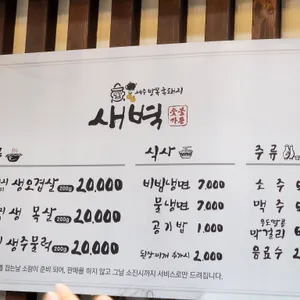 새벽
숯불
식사
주류
생오겹살 200g 20,000
생 목살 200g 20,000
생주물럭 600g 20,000
비빔냉면 7,000
물냉면 7,000
공기밥 1,000
된장찌개 추가시 2,000
소주
맥주
막걸리
음료수 2
잡는날 소량이 준비 되어, 판매를 하지 않고 그날 소진시까지 서비스로만 드려집니다.